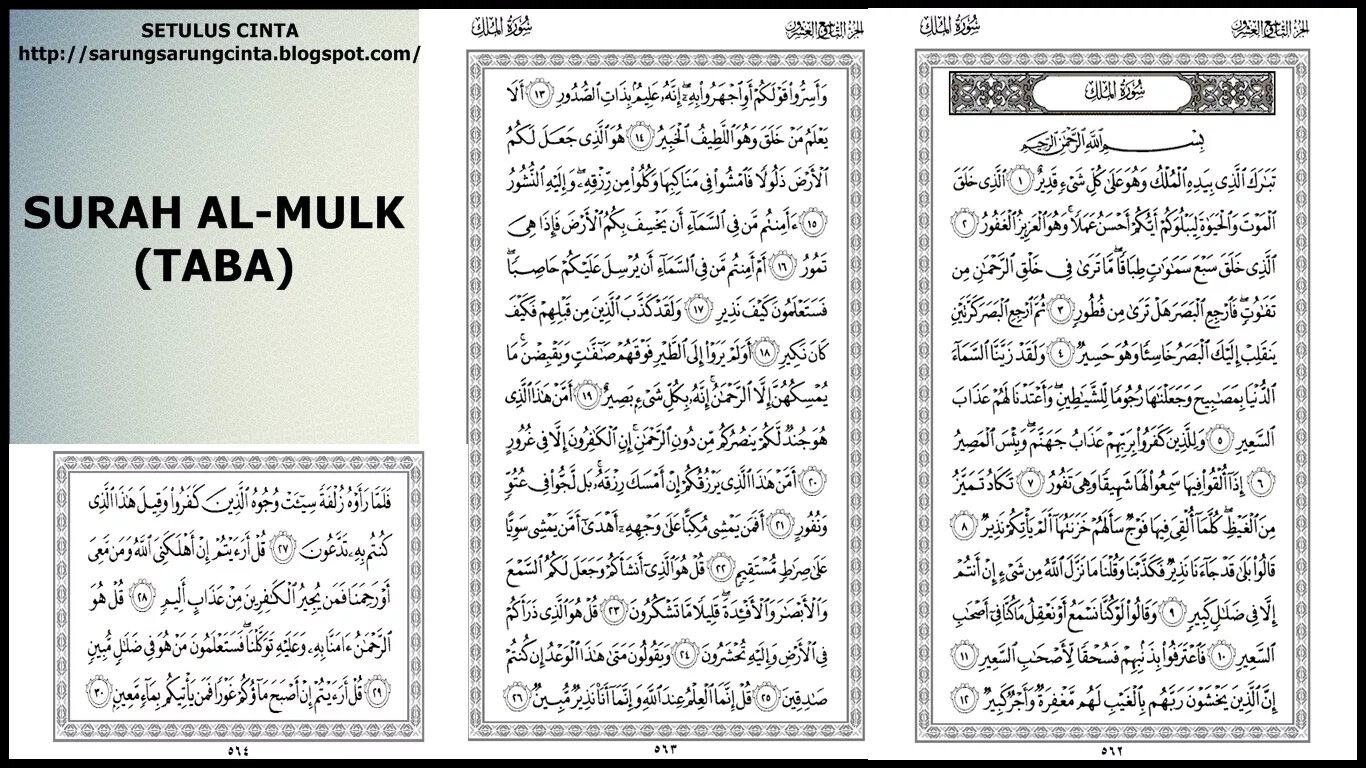 SETULUS CINTA
http://sarungsarungcinta.blogspot.com/
SURAH AL-MULK
(TABA)
سُورَةُ المُلْكِ
الجزء التاسع والعشرون
سُورَةُ المُلْكِ
بِسْمِ اللَّهِ الرَّحْمَٰنِ الرَّحِيمِ
تَبَٰرَكَ ٱلَّذِى بِيَدِهِ ٱلْمُلْكُ وَهُوَ عَلَىٰ كُلِّ شَىْءٍ قَدِيرٌ ١ ٱلَّذِى خَلَقَ
ٱلْمَوْتَ وَٱلْحَيَوٰةَ لِيَبْلُوَكُمْ أَيُّكُمْ أَحْسَنُ عَمَلًا ۚ وَهُوَ ٱلْعَزِيزُ ٱلْغَفُورُ ٢
ٱلَّذِى خَلَقَ سَبْعَ سَمَٰوَٰتٍ طِبَاقًا ۖ مَّا تَرَىٰ فِى خَلْقِ ٱلرَّحْمَٰنِ مِن
تَفَٰوُتٍ ۖ فَٱرْجِعِ ٱلْبَصَرَ هَلْ تَرَىٰ مِن فُطُورٍ ٣ ثُمَّ ٱرْجِعِ ٱلْبَصَرَ كَرَّتَيْنِ
يَنقَلِبْ إِلَيْكَ ٱلْبَصَرُ خَاسِئًا وَهُوَ حَسِيرٌ ٤ وَلَقَدْ زَيَّنَّا ٱلسَّمَآءَ
ٱلدُّنْيَا بِمَصَٰبِيحَ وَجَعَلْنَٰهَا رُجُومًا لِّلشَّيَٰطِينِ ۖ وَأَعْتَدْنَا لَهُمْ عَذَابَ
ٱلسَّعِيرِ ٥ وَلِلَّذِينَ كَفَرُوا۟ بِرَبِّهِمْ عَذَابُ جَهَنَّمَ ۖ وَبِئْسَ ٱلْمَصِيرُ
٦ إِذَآ أُلْقُوا۟ فِيهَا سَمِعُوا۟ لَهَا شَهِيقًا وَهِىَ تَفُورُ ٧ تَكَادُ تَمَيَّزُ
مِنَ ٱلْغَيْظِ ۖ كُلَّمَآ أُلْقِىَ فِيهَا فَوْجٌ سَأَلَهُمْ خَزَنَتُهَآ أَلَمْ يَأْتِكُمْ نَذِيرٌ ٨
قَالُوا۟ بَلَىٰ قَدْ جَآءَنَا نَذِيرٌ فَكَذَّبْنَا وَقُلْنَا مَا نَزَّلَ ٱللَّهُ مِن شَىْءٍ إِنْ أَنتُمْ
إِلَّا فِى ضَلَٰلٍ كَبِيرٍ ٩ وَقَالُوا۟ لَوْ كُنَّا نَسْمَعُ أَوْ نَعْقِلُ مَا كُنَّا فِىٓ أَصْحَٰبِ
ٱلسَّعِيرِ ١٠ فَٱعْتَرَفُوا۟ بِذَنۢبِهِمْ فَسُحْقًا لِّأَصْحَٰبِ ٱلسَّعِيرِ ١١
إِنَّ ٱلَّذِينَ يَخْشَوْنَ رَبَّهُم بِٱلْغَيْبِ لَهُم مَّغْفِرَةٌ وَأَجْرٌ كَبِيرٌ ١٢
٥٦٢
سُورَةُ المُلْكِ
الجزء التاسع والعشرون
وَأَسِرُّوا۟ قَوْلَكُمْ أَوِ ٱجْهَرُوا۟ بِهِۦٓ ۖ إِنَّهُۥ عَلِيمٌۢ بِذَاتِ ٱلصُّدُورِ ١٣ أَلَا
يَعْلَمُ مَنْ خَلَقَ وَهُوَ ٱللَّطِيفُ ٱلْخَبِيرُ ١٤ هُوَ ٱلَّذِى جَعَلَ لَكُمُ
ٱلْأَرْضَ ذَلُولًا فَٱمْشُوا۟ فِى مَنَاكِبِهَا وَكُلُوا۟ مِن رِّزْقِهِۦ ۖ وَإِلَيْهِ ٱلنُّشُورُ
١٥ ءَأَمِنتُم مَّن فِى ٱلسَّمَآءِ أَن يَخْسِفَ بِكُمُ ٱلْأَرْضَ فَإِذَا هِىَ
تَمُورُ ١٦ أَمْ أَمِنتُم مَّن فِى ٱلسَّمَآءِ أَن يُرْسِلَ عَلَيْكُمْ حَاصِبًا ۖ
فَسَتَعْلَمُونَ كَيْفَ نَذِيرِ ١٧ وَلَقَدْ كَذَّبَ ٱلَّذِينَ مِن قَبْلِهِمْ فَكَيْفَ
كَانَ نَكِيرِ ١٨ أَوَلَمْ يَرَوْا۟ إِلَى ٱلطَّيْرِ فَوْقَهُمْ صَٰٓفَّٰتٍ وَيَقْبِضْنَ ۚ مَا
يُمْسِكُهُنَّ إِلَّا ٱلرَّحْمَٰنُ ۚ إِنَّهُۥ بِكُلِّ شَىْءٍۭ بَصِيرٌ ١٩ أَمَّنْ هَٰذَا ٱلَّذِى
هُوَ جُندٌ لَّكُمْ يَنصُرُكُم مِّن دُونِ ٱلرَّحْمَٰنِ ۚ إِنِ ٱلْكَٰفِرُونَ إِلَّا فِى غُرُورٍ
٢٠ أَمَّنْ هَٰذَا ٱلَّذِى يَرْزُقُكُمْ إِنْ أَمْسَكَ رِزْقَهُۥ ۚ بَل لَّجُّوا۟ فِى عُتُوٍّ
وَنُفُورٍ ٢١ أَفَمَن يَمْشِى مُكِبًّا عَلَىٰ وَجْهِهِۦٓ أَهْدَىٰٓ أَمَّن يَمْشِى سَوِيًّا
عَلَىٰ صِرَٰطٍ مُّسْتَقِيمٍ ٢٢ قُلْ هُوَ ٱلَّذِىٓ أَنشَأَكُمْ وَجَعَلَ لَكُمُ ٱلسَّمْعَ
وَٱلْأَبْصَٰرَ وَٱلْأَفْـِٔدَةَ ۖ قَلِيلًا مَّا تَشْكُرُونَ ٢٣ قُلْ هُوَ ٱلَّذِى ذَرَأَكُمْ
فِى ٱلْأَرْضِ وَإِلَيْهِ تُحْشَرُونَ ٢٤ وَيَقُولُونَ مَتَىٰ هَٰذَا ٱلْوَعْدُ إِن كُنتُمْ
صَٰدِقِينَ ٢٥ قُلْ إِنَّمَا ٱلْعِلْمُ عِندَ ٱللَّهِ وَإِنَّمَآ أَنَا۠ نَذِيرٌ مُّبِينٌ ٢٦
٥٦٣
فَلَمَّا رَأَوْهُ زُلْفَةً سِيٓـَٔتْ وُجُوهُ ٱلَّذِينَ كَفَرُوا۟ وَقِيلَ هَٰذَا ٱلَّذِى
كُنتُم بِهِۦ تَدَّعُونَ ٢٧ قُلْ أَرَءَيْتُمْ إِنْ أَهْلَكَنِىَ ٱللَّهُ وَمَن مَّعِىَ
أَوْ رَحِمَنَا فَمَن يُجِيرُ ٱلْكَٰفِرِينَ مِنْ عَذَابٍ أَلِيمٍ ٢٨ قُلْ هُوَ
ٱلرَّحْمَٰنُ ءَامَنَّا بِهِۦ وَعَلَيْهِ تَوَكَّلْنَا ۖ فَسَتَعْلَمُونَ مَنْ هُوَ فِى ضَلَٰلٍ مُّبِينٍ
٢٩ قُلْ أَرَءَيْتُمْ إِنْ أَصْبَحَ مَآؤُكُمْ غَوْرًا فَمَن يَأْتِيكُم بِمَآءٍ مَّعِينٍۭ ٣٠
٥٦٤